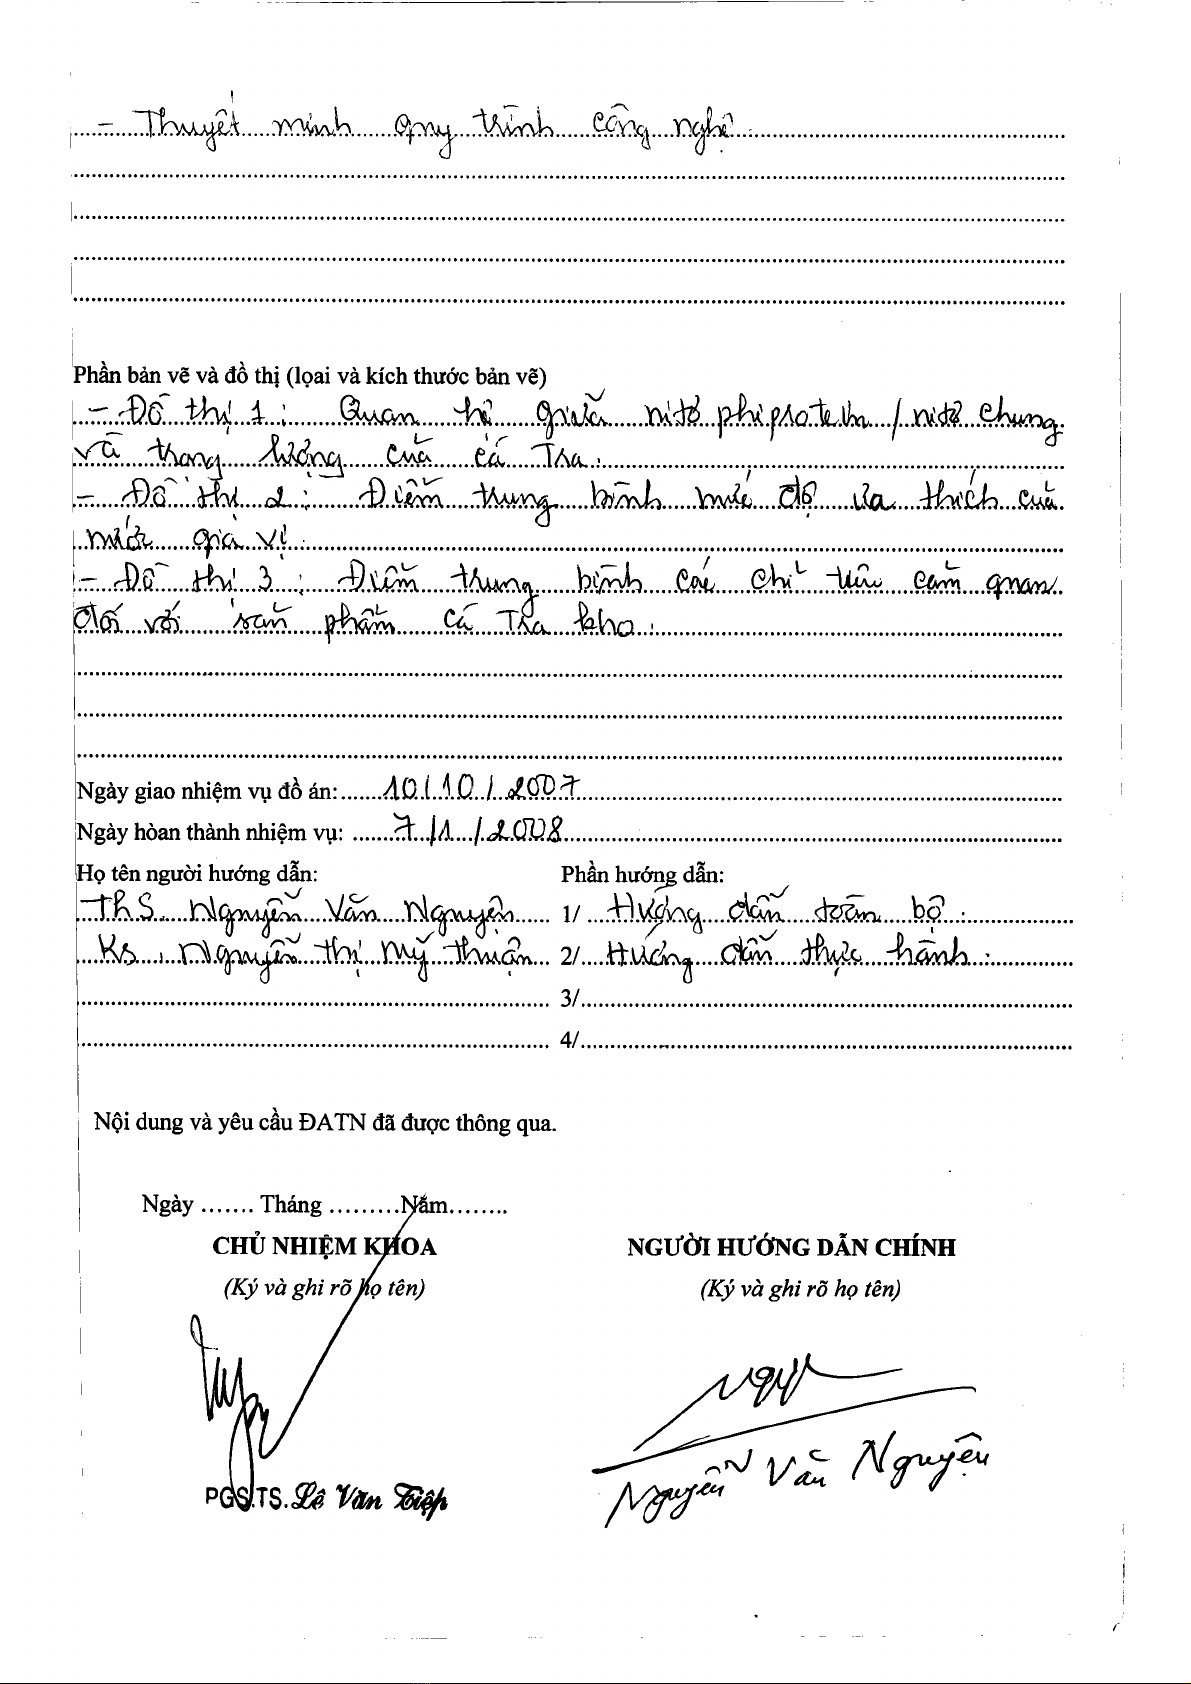 - Thuyết minh quy trình công nghệ.
Phần bản vẽ và đồ thị (lọai và kích thước bản vẽ)
- Đồ thị 1 : Quan hệ giữa nitơ phi protein / nitơ chung
và trọng lượng của cá Tra.
- Đồ thị 2 : Điểm trung bình mức độ ưa thích của
nước gia vị.
- Đồ thị 3 : Điểm trung bình các chỉ tiêu cảm quan
đối với sản phẩm cá Tra kho.
Ngày giao nhiệm vụ đồ án: 10 / 10 / 2007
Ngày hòan thành nhiệm vụ: 7 / 1 / 2008
Họ tên người hướng dẫn: Phần hướng dẫn:
ThS. Nguyễn Văn Nguyện 1/ Hướng dẫn toàn bộ.
Ks. Nguyễn thị Mỹ thuận 2/ Hướng dẫn thực hành.
3/
4/
Nội dung và yêu cầu ĐATN đã được thông qua.
Ngày ....... Tháng .........Năm........
CHỦ NHIỆM KHOA NGƯỜI HƯỚNG DẪN CHÍNH
(Ký và ghi rõ họ tên) (Ký và ghi rõ họ tên)
PGS.TS. Lê Văn Tiệp Nguyễn Văn Nguyện